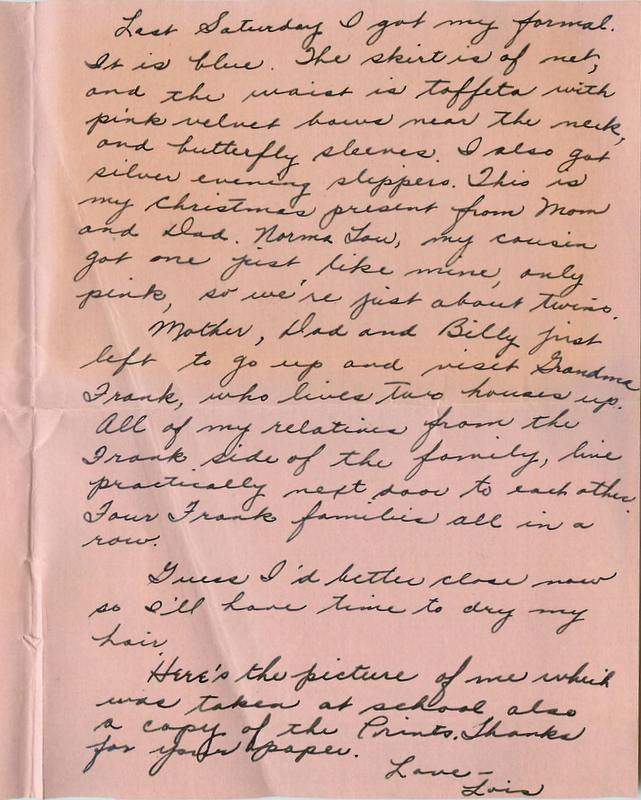 Last Saturday I got my formal.
It is blue. The skirt is of net,
and the waist is taffeta with
pink velvet bows near the neck,
and butterfly sleeves. I also got
silver evening slippers. This is
my Christmas present from Mom
and Dad. Norma Lou, my cousin
got one just like mine, only
pink, so we're just about twins.
Mother, Dad and Billy just
left to go up and visit Grandma
Frank, who lives two houses up.
All of my relatives from the
Frank side of the family, live
practically next door to each other.
Four Frank families all in a
row.
Guess I'd better close now
so I'll have time to dry my
hair.
Here's the picture of me which
was taken at school also
a copy of the Prints. Thanks
for your paper.
Love -
Lois